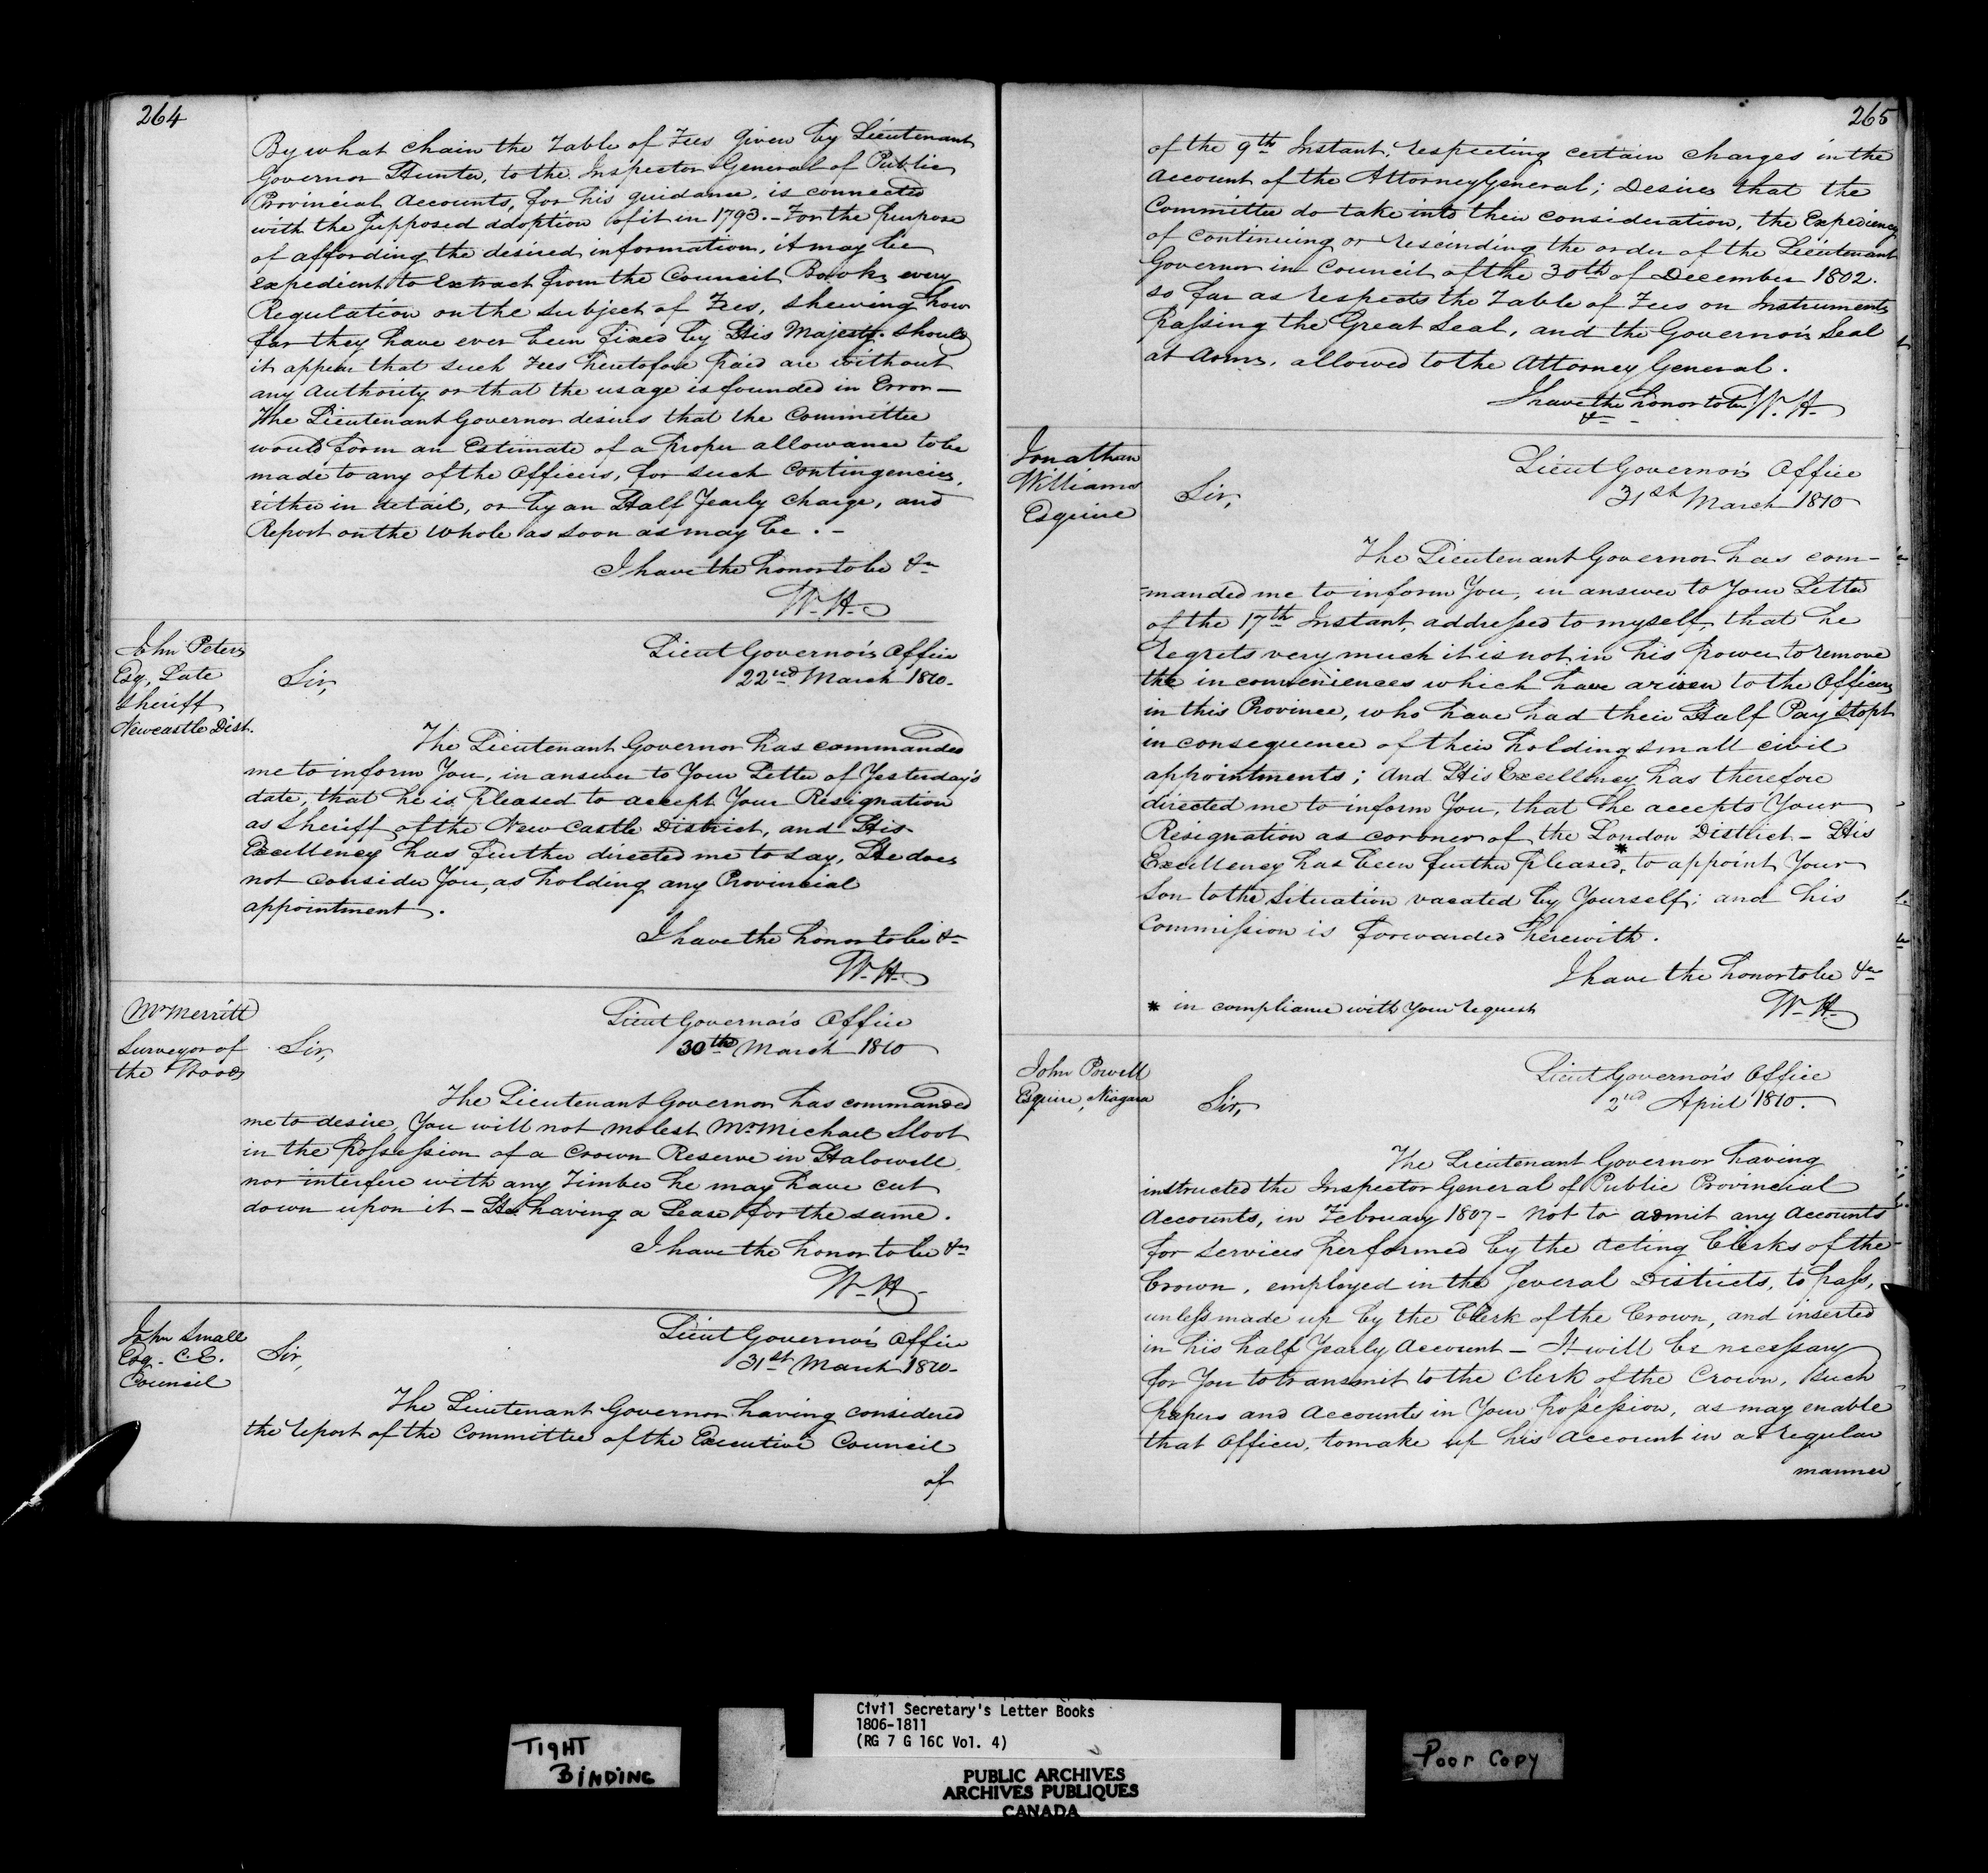 264
By what chain the Table of Fees given by Lieutenant
Governor Hunter, to the Inspector General of Public
Provincial Accounts, for his guidance, is connected
with the supposed adoption of it in 1793. - For the purpose
of affording the desired information, it may be
expedient to Extract from the Council Books every
Regulation on the subject of Fees, shewing how
far they have ever been fixed by His Majesty. Should
it appear that such Fees heretofore paid are without
any Authority or that the usage is founded in Error -
The Lieutenant Governor desires that the Committee
would form an Estimate of a proper allowance to be
made to any of the Officers, for such Contingencies,
either in detail, or by an Half Yearly Charge, and
Report on the whole as soon as may be. -
I have the honor to be &c
W. H.
John Peters
Esq. Late
Sheriff
Newcastle Dist.
Lieut Governor's Office
22nd March 1810.
Sir,
The Lieutenant Governor has commanded
me to inform You, in answer to Your Letter of Yesterday's
date, that he is pleased to accept Your Resignation
as Sheriff of the New Castle District, and His
Excellency has further directed me to say, He does
not consider You, as holding any Provincial
appointment.
I have the honor to be &c
W. H.
Mr Merritt
Surveyor of
the Woods
Lieut Governor's Office
30th March 1810
Sir,
The Lieutenant Governor has commanded
me to desire, You will not molest Mr Michael Sloot
in the Possession of a Crown Reserve in Halowell,
nor interfere with any Timber he may have cut
down upon it - He having a Lease for the same.
I have the honor to be &c
W. H.
John Small
Esq. C. E.
Council
Lieut Governor's Office
31st March 1810-
Sir,
The Lieutenant Governor having considered
the report of the Committee of the Executive Council
of
265
of the 9th Instant, respecting certain charges in the
Account of the Attorney General; Desires that the
Committee do take into their consideration, the Expediency
of continuing or rescinding the order of the Lieutenant
Governor in Council of the 30th of December 1802.
so far as respects the Table of Fees on Instruments
passing the Great Seal, and the Governor's Seal
at Arms, allowed to the Attorney General.
I have the honor to be W. H.
&c
Jonathan
Williams
Esquire
Lieut Governor's Office
31st March 1810
Sir,
The Lieutenant Governor has com-
-manded me to inform You, in answer to Your Letter
of the 17th Instant, addressed to myself, that he
regrets very much it is not in his power to remove
the inconveniences which have arisen to the Officers
in this Province, who have had their Half Pay Stopt
in consequence of their holding small civil
appointments; And His Excellency has therefore
directed me to inform You, that he accepts Your
Resignation as coroner of the London District - His
Excellency has been further pleased,* to appoint Your
Son to the Situation vacated by Yourself; and his
Commission is forwarded herewith.
I have the honor to be &c
* in compliance with Your request
W. H.
John Powell
Esquire, Niagara
Lieut Governor's Office
2nd April 1810.
Sir,
The Lieutenant Governor having
instructed the Inspector General of Public Provincial
Accounts, in February 1807 - not to admit any Accounts
for Services performed by the Acting Clerks of the
Crown, employed in the Several Districts, to pass,
unless made up by the Clerk of the Crown, and inserted
in his half Yearly Account - It will be necessary
for You to transmit to the Clerk of the Crown, such
papers and Accounts in Your possession, as may enable
that Officer, to make up his Account in a regular
manner
TIGHT
BINDING
Civil Secretary's Letter Books
1806-1811
(RG 7 G 16C Vol. 4)
PUBLIC ARCHIVES
ARCHIVES PUBLIQUES
CANADA
Poor Copy